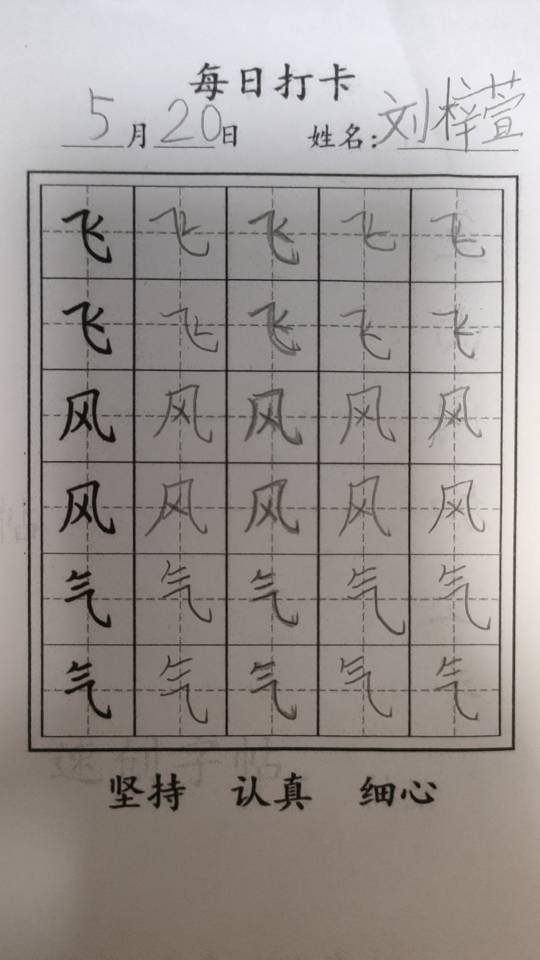 每日打卡
5月20日 姓名:刘梓萱
飞飞飞飞飞
飞飞飞飞飞
风风风风风
风风风风风
气气气气气
气气气气气
坚持 认真 细心